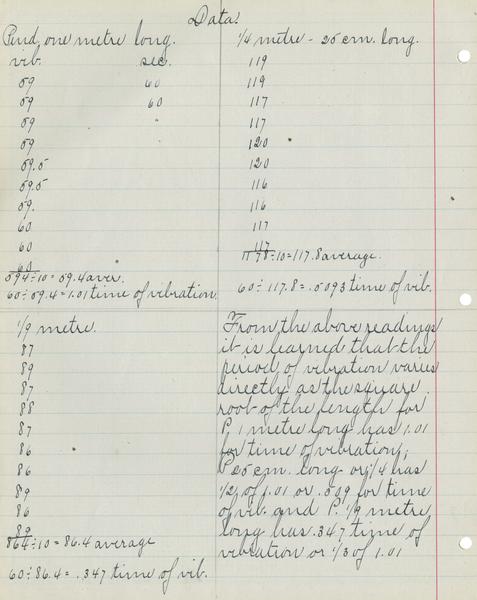 Data.
Pend. one metre long.
vib. sec.
59 60
59 60
59 "
59
59.5
59.5
59.
60
60
60
594÷10=59.4 aver.
60÷59.4=1.01 time of vibration.
1/4 metre - 25 cm. long.
119
119
117
117
120
120
116
116
117
117
1178÷10=117.8 average.
60÷117.8=.5093 time of vib.
1/9 metre.
87
89
87
88
87
86
86
89
86
89
864÷10=86.4 average
60÷86.4= .347 time of vib.
From the above readings
it is learned that the
period of vibration varies
directly as the square
root of the length for
P. 1 metre long has 1.01
for time of vibration;
P 25 cm. long or 1/4 has
1/2 of 1.01 or .509 for time
of vib. and P. 1/9 metre
long has .347 time of
vibration or 1/3 of 1.01